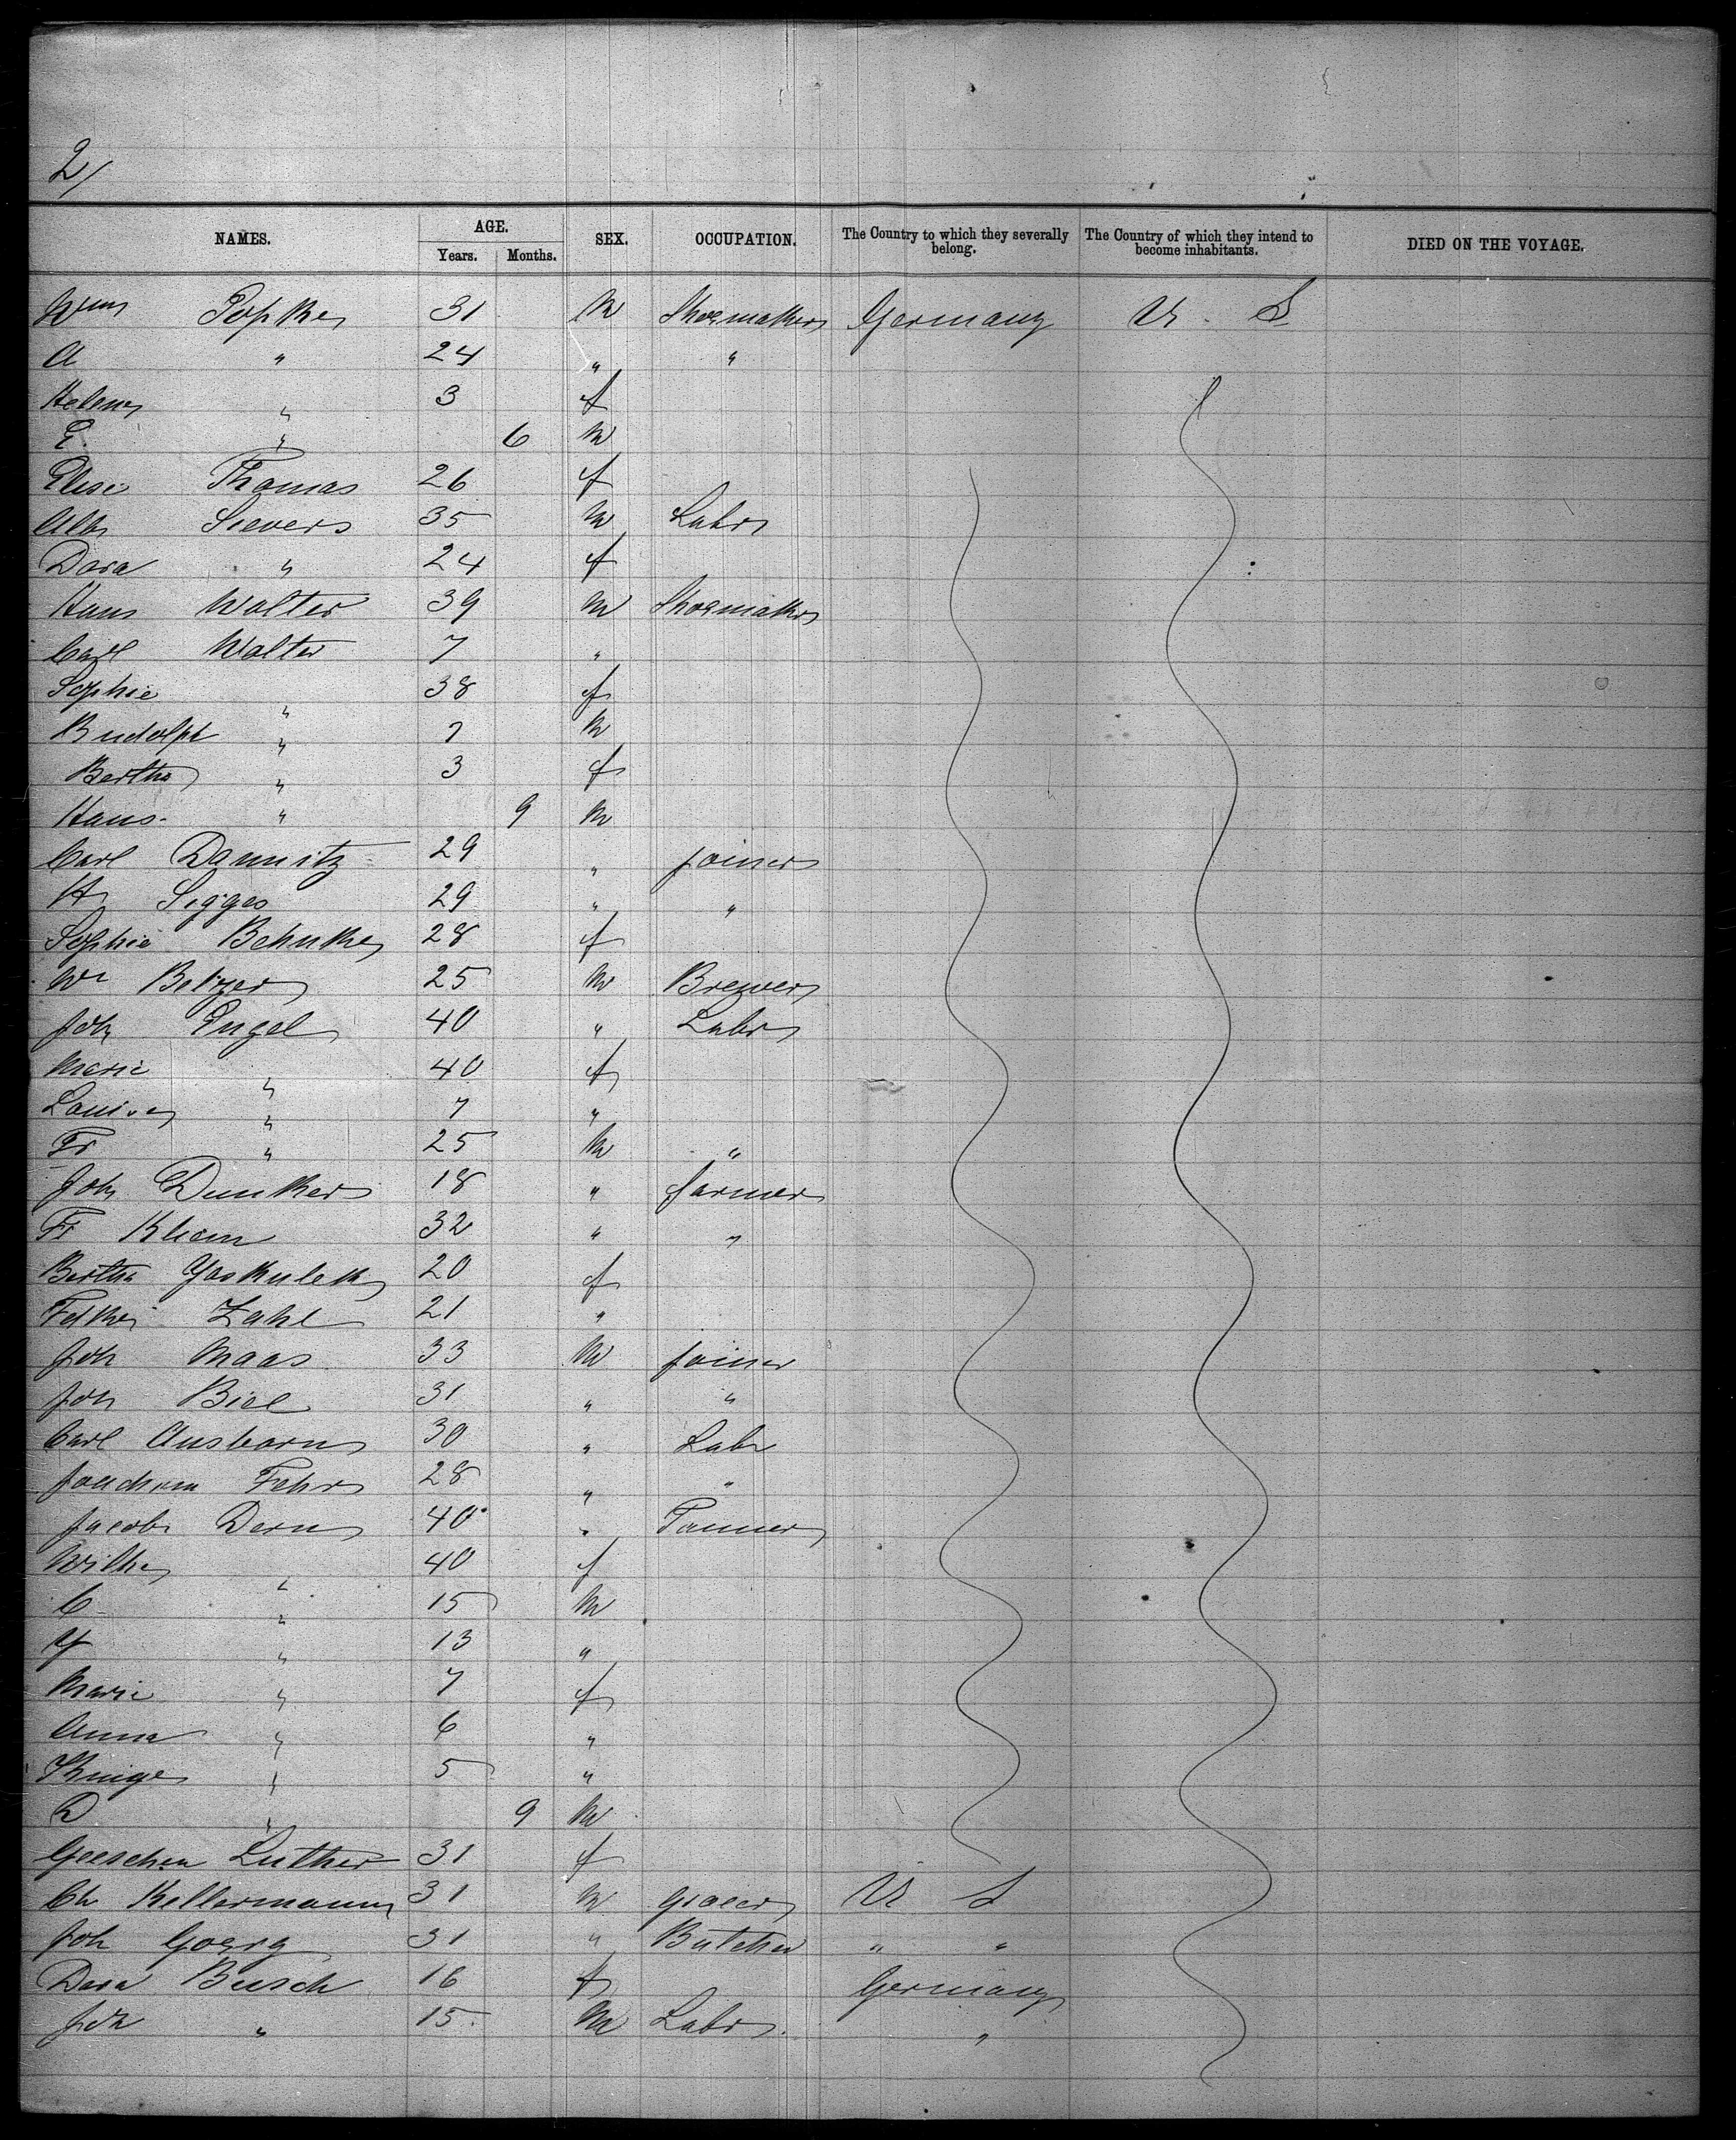 2/
NAMES. AGE. SEX. OCCUPATION. The Country to which they severally belong. The Country of which they intend to become inhabitants. DIED ON THE VOYAGE.
Years. Months.
Wm Popke 31 M Shoemaker Germany U. S
A " 24 " "
Helene " 3 f
E. " 6 M
Elise Thomas 26 f
Alb Sievers 35 M Labr
Dora " 24 f
Hans Walter 39 M Shoemaker
Carl Walter 7 "
Sophie " 38 f
Rudolph " 7 M
Bertha " 3 f
Hans " 9 M
Carl Dannitz 29 " joiner
H Sigges 29 " "
Sophie Behnke 28 f
Wm Betzer 25 M Brewer
Joh Engel 40 " Labr
Marie " 40 f
Louise " 7 "
Fr " 25 M "
Joh Dunker 18 " farmer
Fr Kliem 32 " "
Bertha 20 f
Zahl 21 "
Joh Maas 33 M joiner
Joh Biel 31 " "
Carl Ausborn 30 " Labr
Joachim Fehr 28 " "
Jacob Dern 40 " Tanner
Wilhe " 40 f
C " 15 M
" 13 "
Marie " 7 f
Anna " 6 "
" 5 "
D " 9 M
Geeschen Luther 31 f
Ch Kellermann 31 M grocer U S
Joh Goerg 31 " Butcher " "
Dora Busch 16 f Germany
Joh " 15 M Labr "